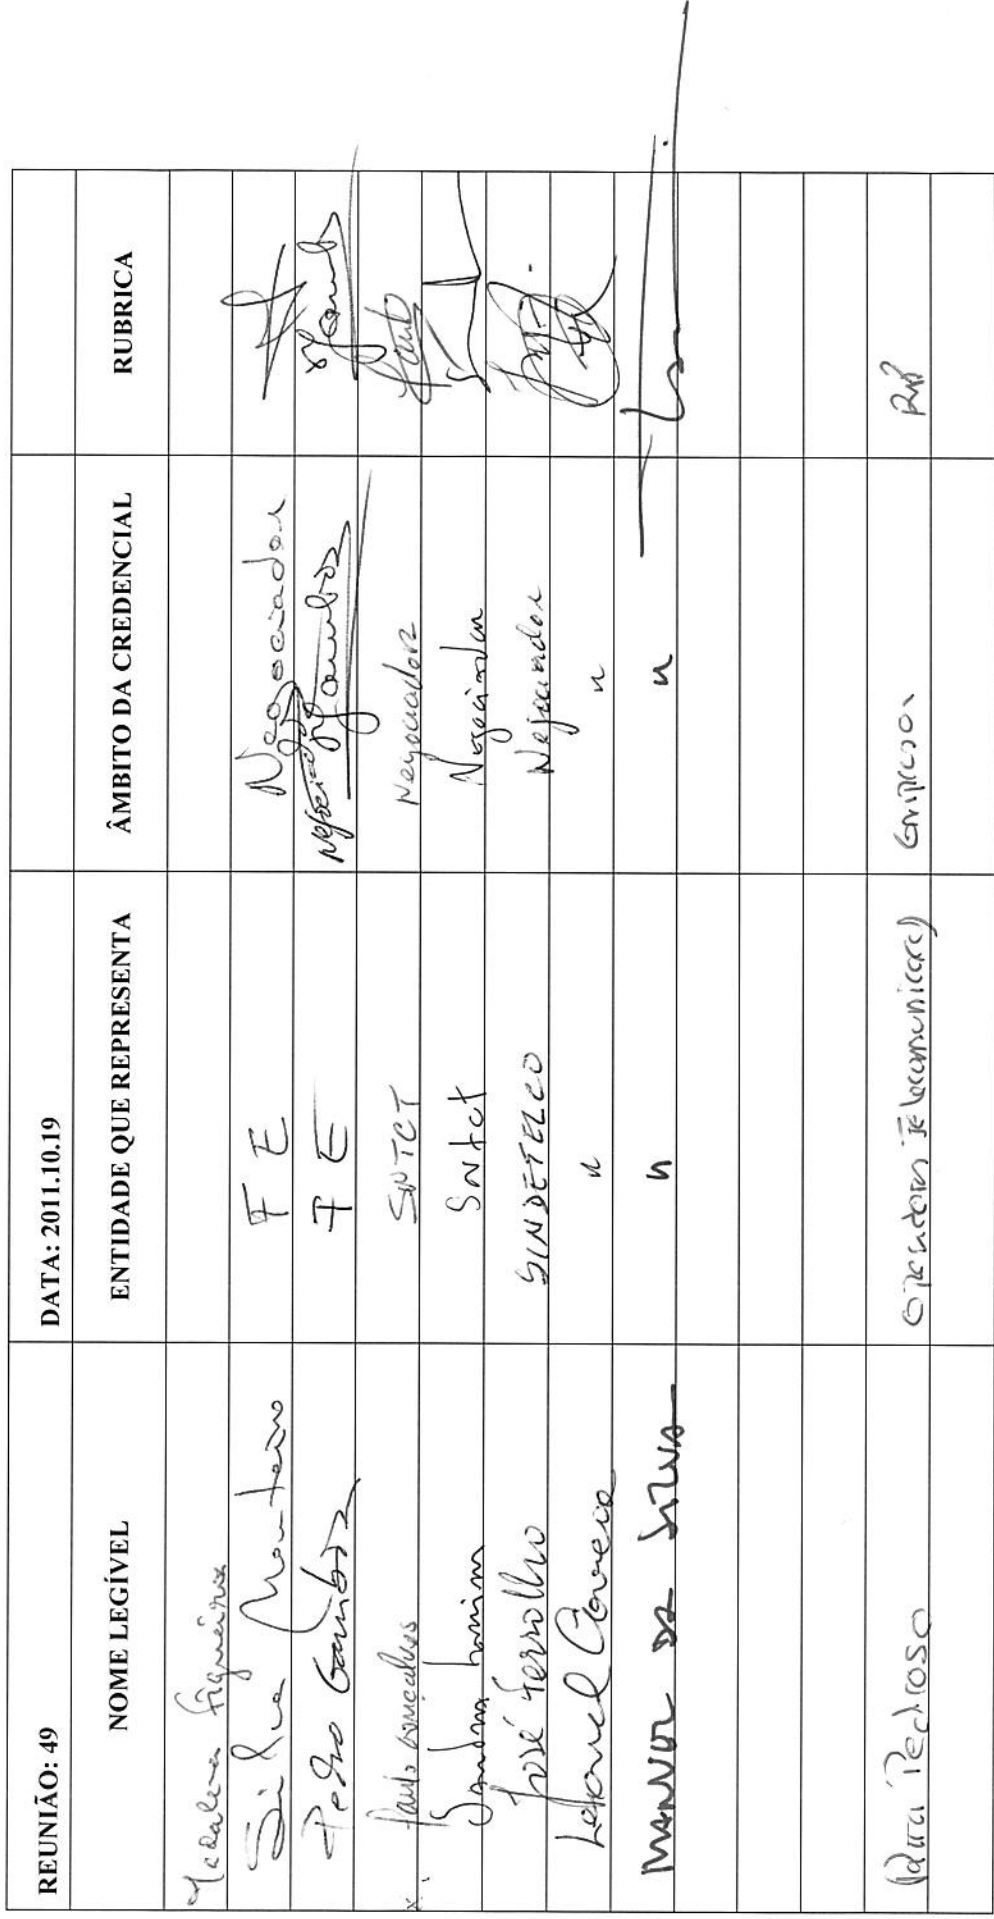 REUNIÃO: 49 DATA: 2011.10.19
NOME LEGÍVEL ENTIDADE QUE REPRESENTA ÂMBITO DA CREDENCIAL RUBRICA
Madalena Figueiria
Silva Monteiro F E Negociador
Pedro F E Negociador
Paulo Gonçalves SNTCT Negociador
Sntct Negociador
José Ferrolho SINDETELCO Negociador
Correia " "
MANUEL DA SILVA " "
Pedroso Empresa